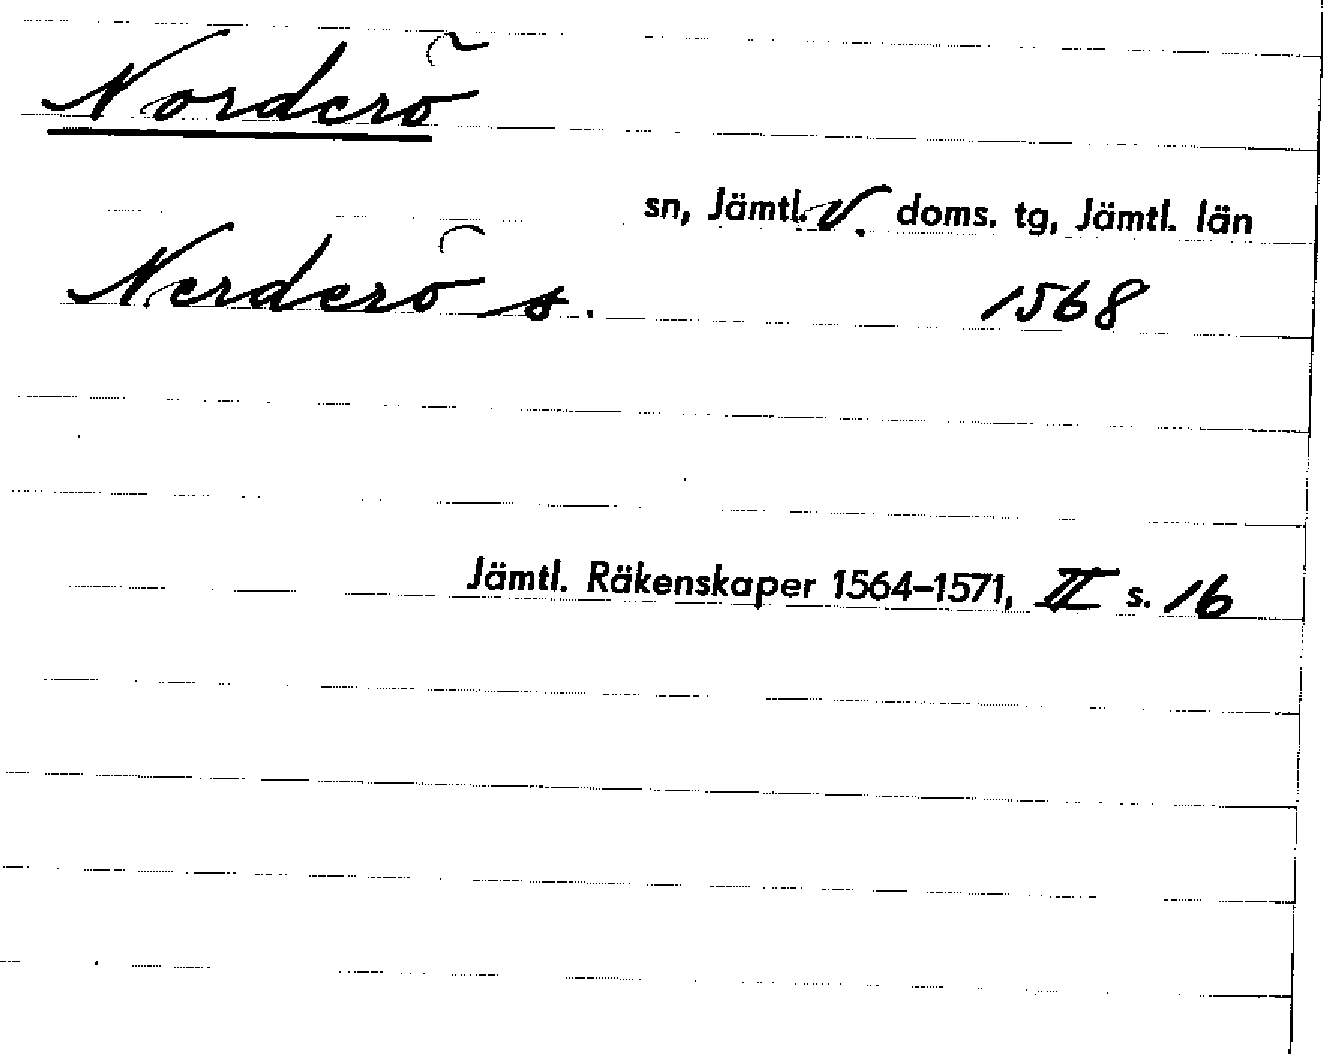 Norderö
sn, Jämtl. V. doms. tg, Jämtl. län
Nerderö s. 1568
Jämtl. Räkenskaper 1564–1571, II s. 16